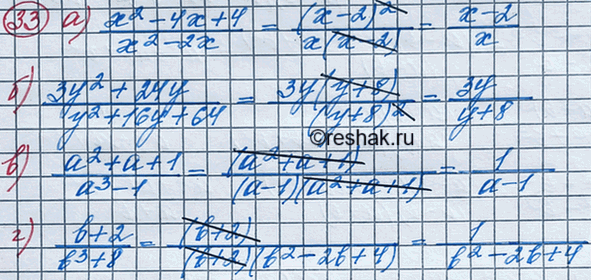 33 а) (x² - 4x + 4)/(x² - 2x) = (x - 2)²/(x(x - 2)) = (x - 2)/x
б) (3y² + 24y)/(y² + 16y + 64) = 3y(y + 8)/(y + 8)² = 3y/(y + 8)
©reshak.ru
в) (a² + a + 1)/(a³ - 1) = (a² + a + 1)/((a - 1)(a² + a + 1)) = 1/(a - 1)
г) (b + 2)/(b³ + 8) = (b + 2)/((b + 2)(b² - 2b + 4)) = 1/(b² - 2b + 4)